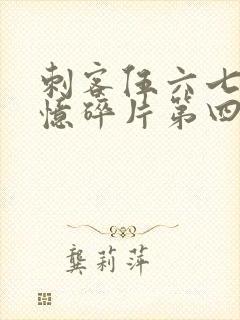 刺客伍六七
憶碎片第四
龔莉萍